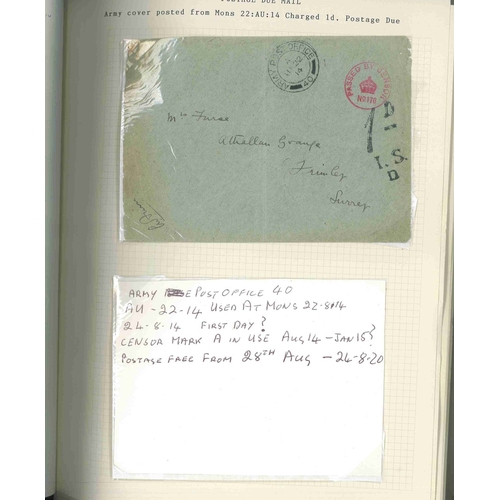 POSTAGE DUE MAIL
Army cover posted from Mons 22:AU:14 Charged 1d. Postage Due
ARMY POST OFFICE
14
40
PASSED BY CENSOR
No 170
1D
I.S.
D
Mrs Furse
Grange
Frimley
Surrey
ARMY POST OFFICE 40
AU -22-14 USED AT MONS 22-8-14
24-8-14 FIRST DAY?
CENSOR MARK A IN USE AUG 14 - JAN 15?
POSTAGE FREE FROM 28TH AUG - 24-8-20